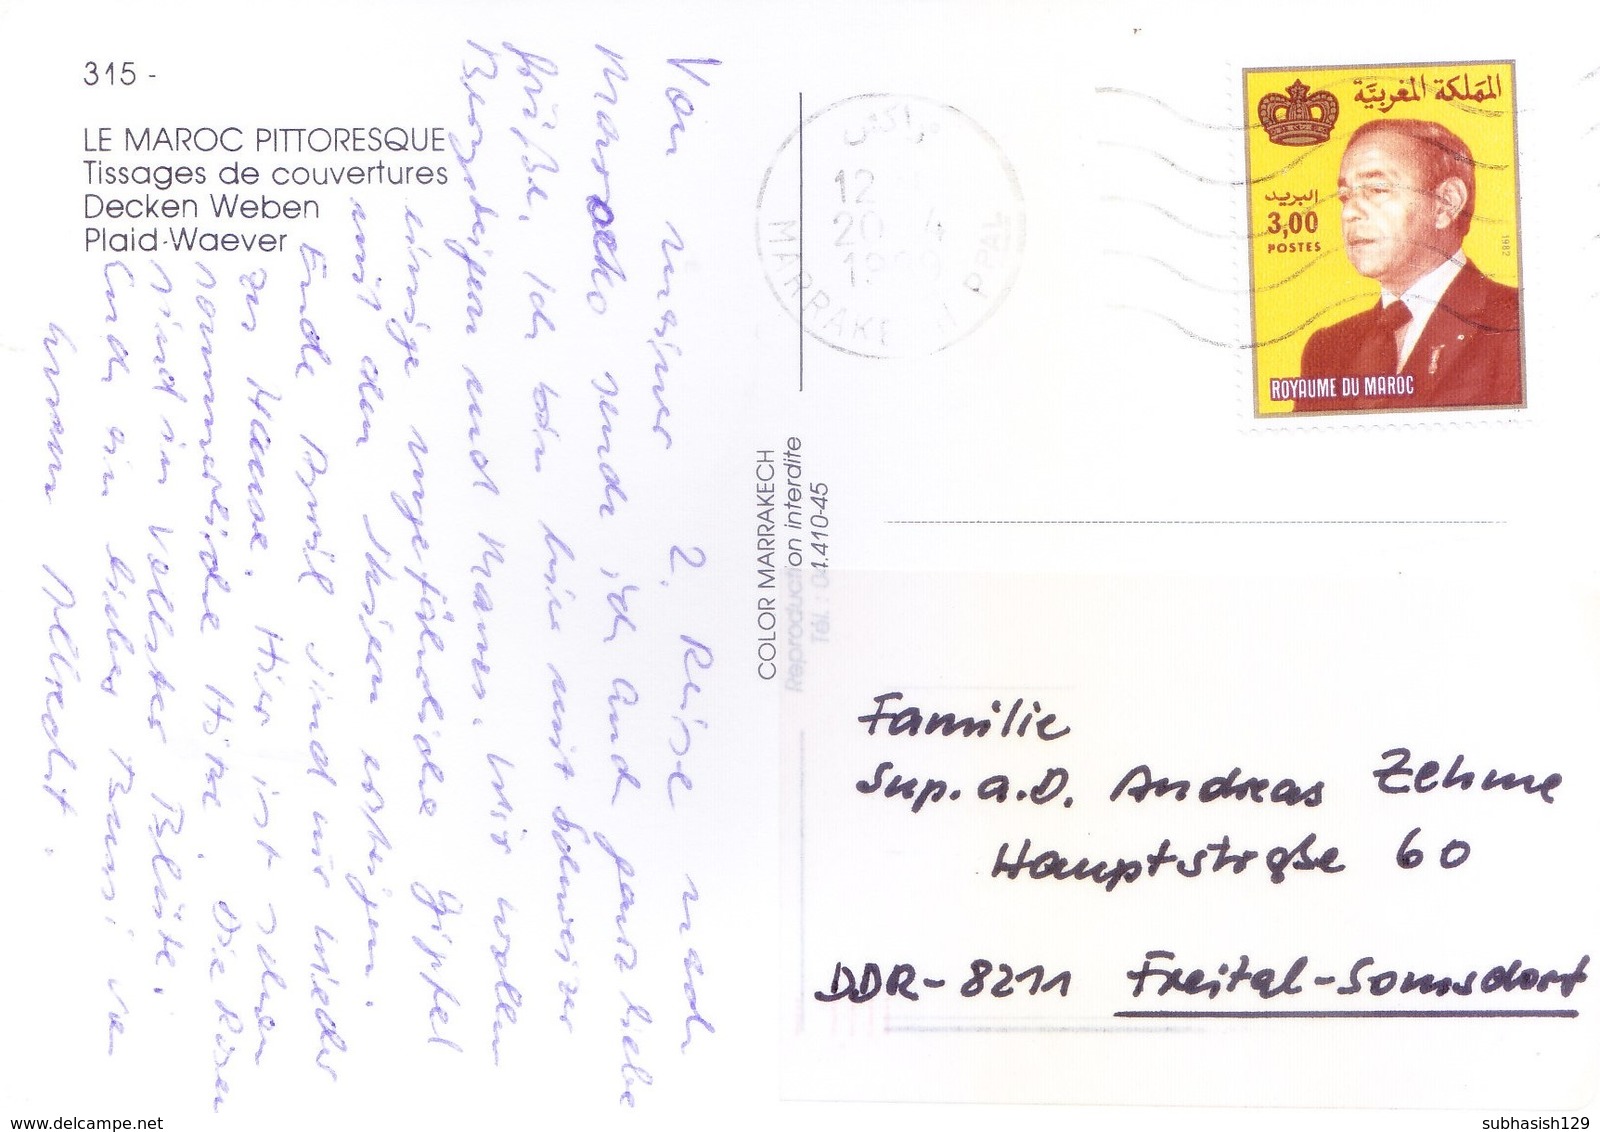 315 -
LE MAROC PITTORESQUE
Tissages de couvertures
Decken Weben
Plaid-Waever
Von meiner 2. Reise nach
Marocko sende ich Euch ganz liebe
Grüße. Ich bin hier mit Schweizer
Bergsteigern und Mauer. Wir wollen
einige ungefährliche Gipfel
mit den Skiern ersteigen.
Ende April sind wir wieder
zu Hause. Hier ist schon
sommerliche Hitze. Die Rosen
sind in vollster Blüte.
Euch ein liebes Bussi von
Eurem
COLOR MARRAKECH
Reproduction interdite
Tél. : 04
4.410-45
مراكش
12
20 4
MARRAKE H PPAL
المملكة المغربية
البريد
3,00
POSTES
1982
ROYAUME DU MAROC
Familie
Sup. a.D. Andreas Zehme
Hauptstraße 60
DDR-8211 Freital-Somsdorf
www.delcampe.net
subhasish129